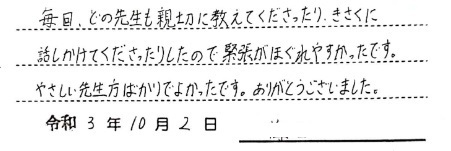 毎回、どの先生も親切に教えてくださったり、きさくに
話しかけてくださったりしたので緊張がほぐれやすかったです。
やさしい先生方ばかりでよかったです。ありがとうございました。
令和 3 年 10 月 2 日